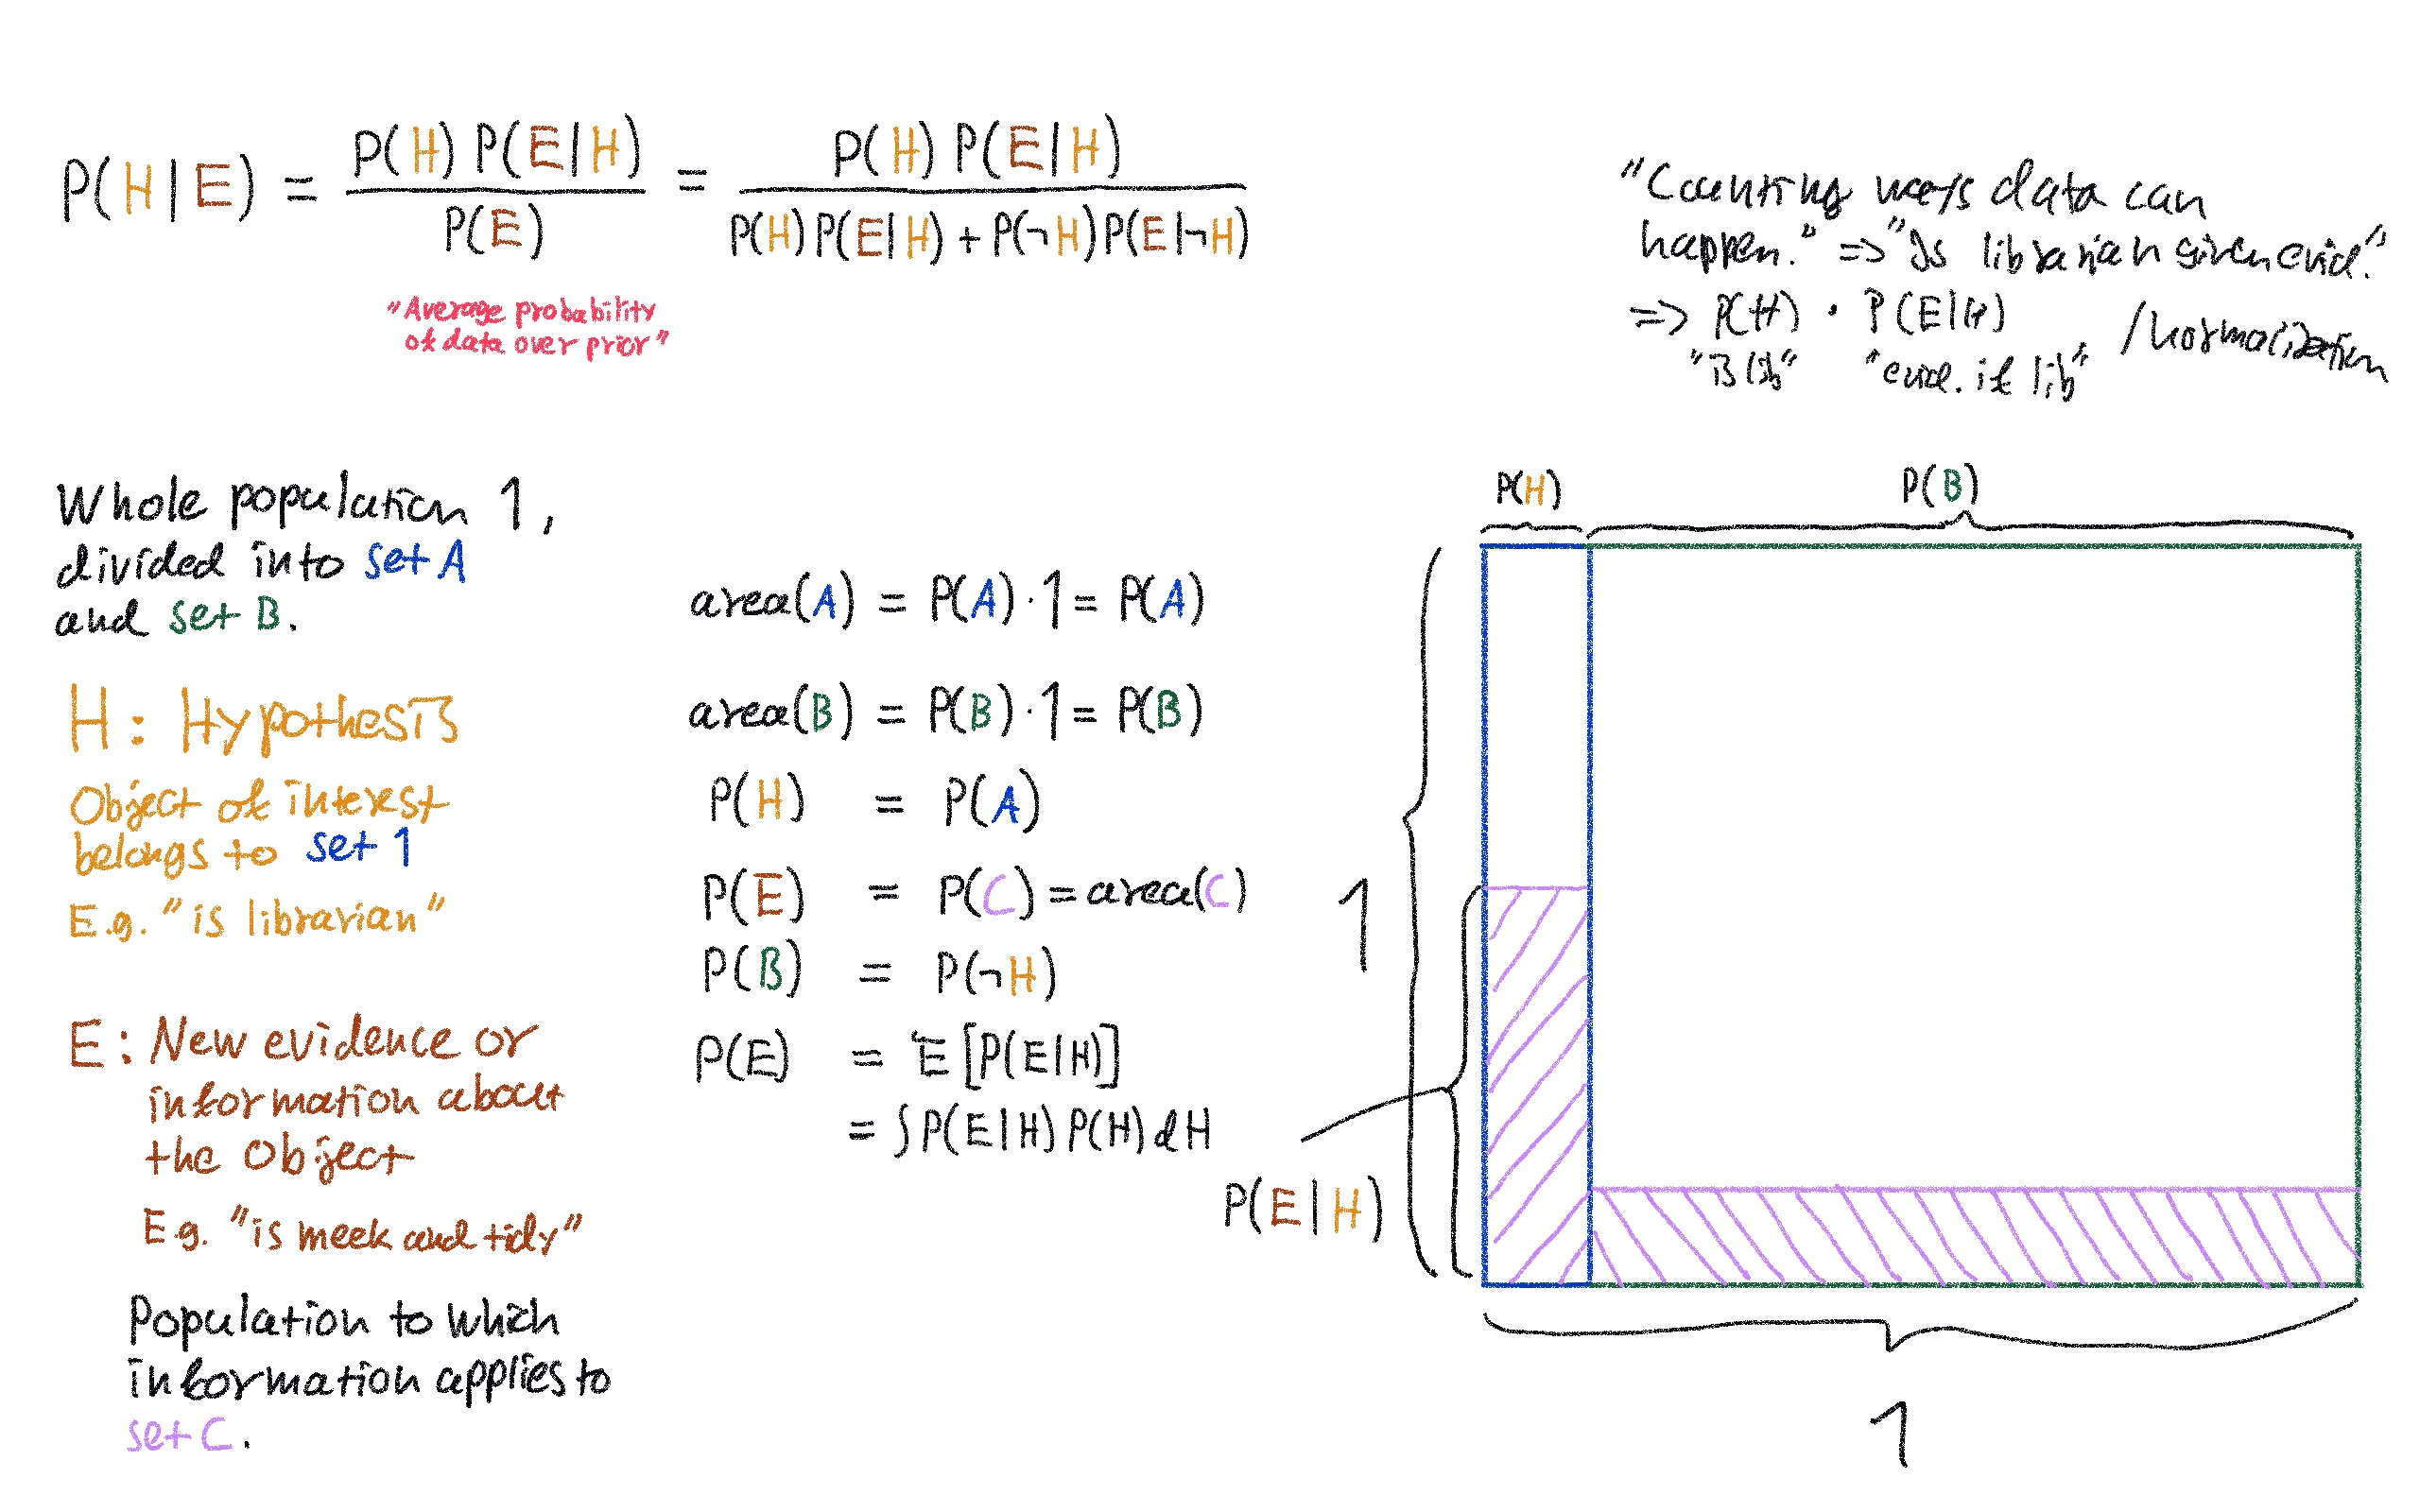 P(H|E) = P(H) P(E|H) / P(E) = P(H) P(E|H) / P(H) P(E|H) + P(¬H) P(E|¬H)
"Average probability
of data over prior"
"Counting ways data can
happen." => "Is librarian given evid."
=> P(H) · P(E|H) /normalization
"is lib" "evid. if lib"
Whole population 1,
divided into set A
and set B.
H: Hypothesis
Object of interest
belongs to set 1
E.g. "is librarian"
E: New evidence or
information about
the Object
E.g. "is meek and tidy"
Population to which
information applies to
set C.
area(A) = P(A) · 1 = P(A)
area(B) = P(B) · 1 = P(B)
P(H) = P(A)
P(E) = P(C) = area(C)
P(B) = P(¬H)
P(E) = E[P(E|H)]
= ∫ P(E|H) P(H) dH
P(H) P(B)
1
P(E|H)
1